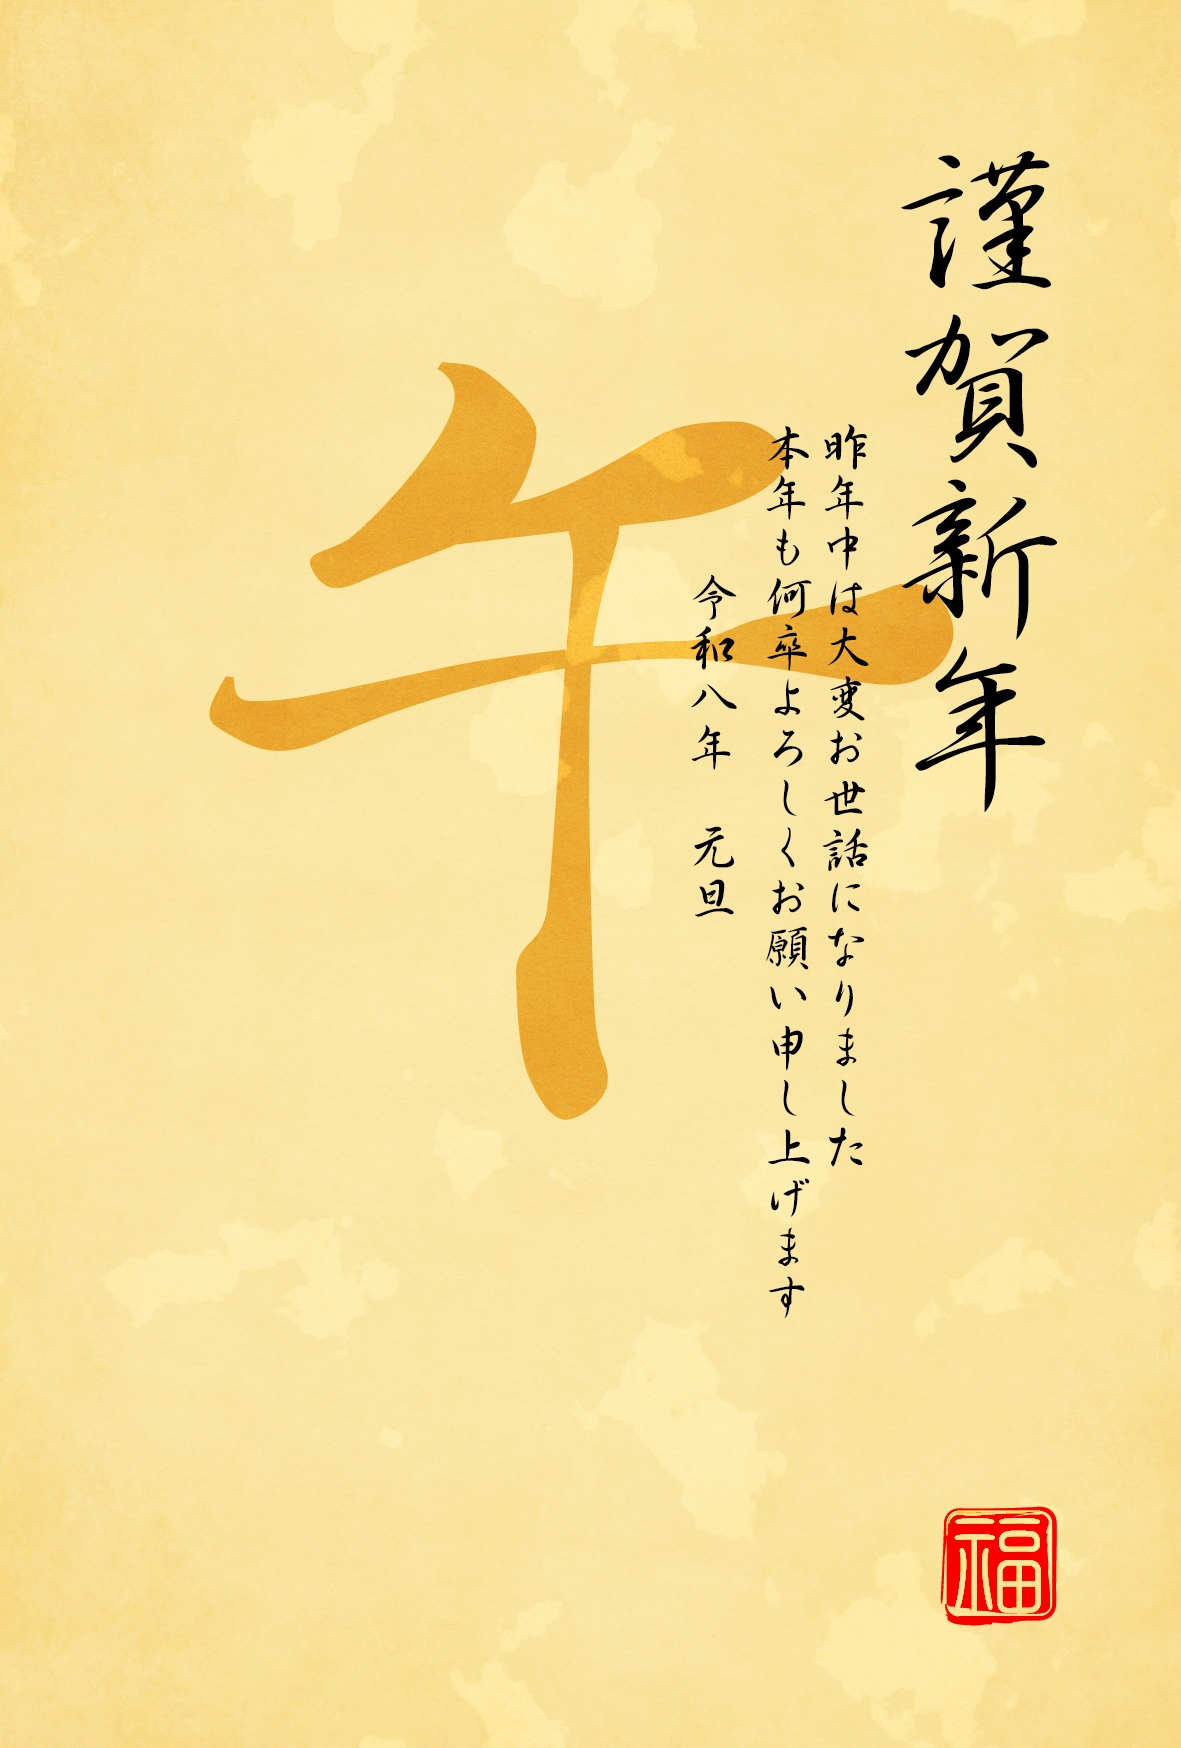 謹賀新年
昨年中は大変お世話になりました
本年も何卒よろしくお願い申し上げます
令和八年　元旦
午
福